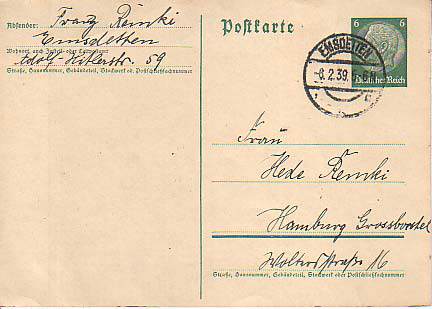 Absender: Franz Remki
Emsdetten
Wohnort, auch Zustell- oder Leitpostamt
Adolf-Hitlerstr. 59
Straße, Hausnummer, Gebäudeteil, Stockwerk od. Postschließfachnummer
Postkarte
6 6
Deutsches Reich
EMSDETTEN
-6.2.39.
Frau
Hede Remki
Hamburg Grossborstel
Woltersstraße 16
Straße, Hausnummer, Gebäudeteil, Stockwerk oder Postschließfachnummer